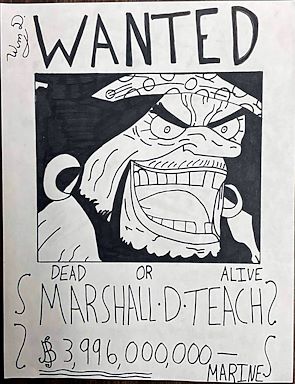 WANTED
DEAD OR ALIVE
MARSHALL·D·TEACH
฿ 3,996,000,000—
MARINE